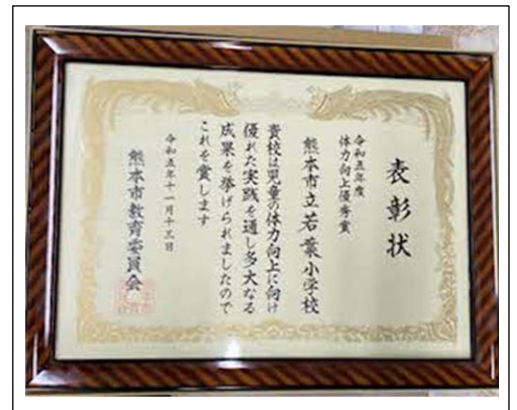 表彰状
令和五年度
体力向上優秀賞
熊本市立若葉小学校
貴校は児童の体力向上に向け
優れた実践を通し多大なる
成果を挙げられましたので
これを賞します
令和五年十一月十三日
熊本市教育委員会